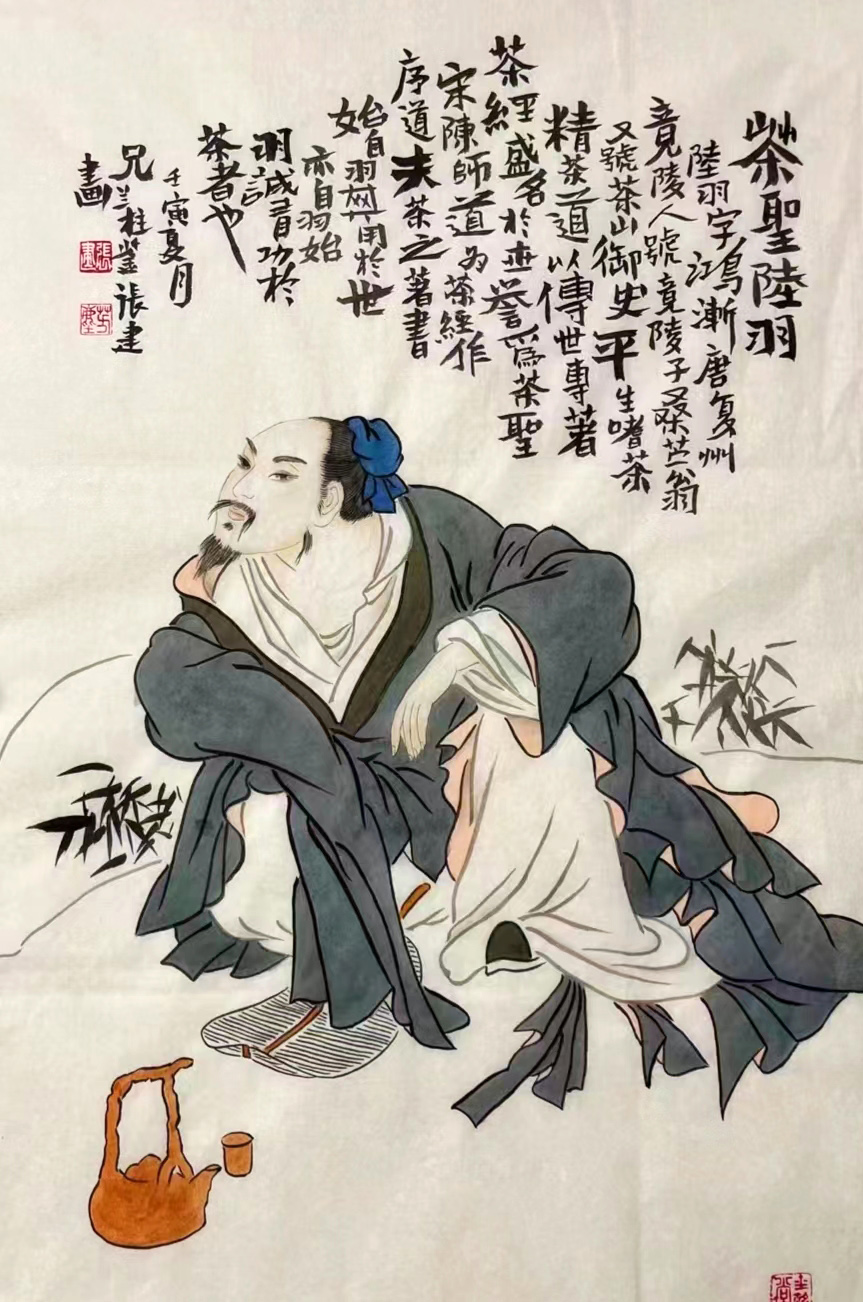 茶聖陸羽
陸羽字鴻漸唐复州
竟陵人號竟陵子桑苎翁
又號茶山御史平生嗜茶
精茶道以傳世專著
茶經盛名於世誉爲茶聖
宋陳師道为茶經作
序道夫茶之著書
始自羽其用於世
亦自羽始
羽誠有功於
茶者也
壬寅夏月
兄兰柱鉴張建
畫